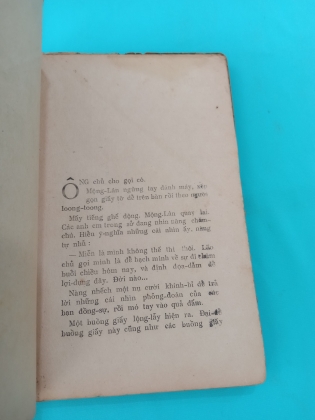 ÔNG chủ cho gọi cô.
Mộng-Lan ngừng tay đánh máy,
gọn giấy tờ để trên bàn rồi theo người
loong-toong.
Mấy tiếng ghế động. Mộng-Lan quay lại.
Các anh em trong sở đang nhìn nàng chăm-
chú. Hiểu ý-nghĩa những cái nhìn ấy, nàng
tự nhủ:
— Miễn là mình không thế thì thôi. Lão
chủ gọi mình là để bạch mình về sự đi chậm
buổi chiều hôm nay, và định dọa-dẫm để
lợi-dụng đây. Đời nào...
Nàng nhếch một nụ cười khinh-bỉ để trả
lời những cái nhìn phỏng-đoán của các
bạn đồng-sự, rồi mở tay vào quả đấm.
Một buồng giấy lộng-lẫy hiện ra. Đại-để
buồng giấy này cũng như các buồng giấy